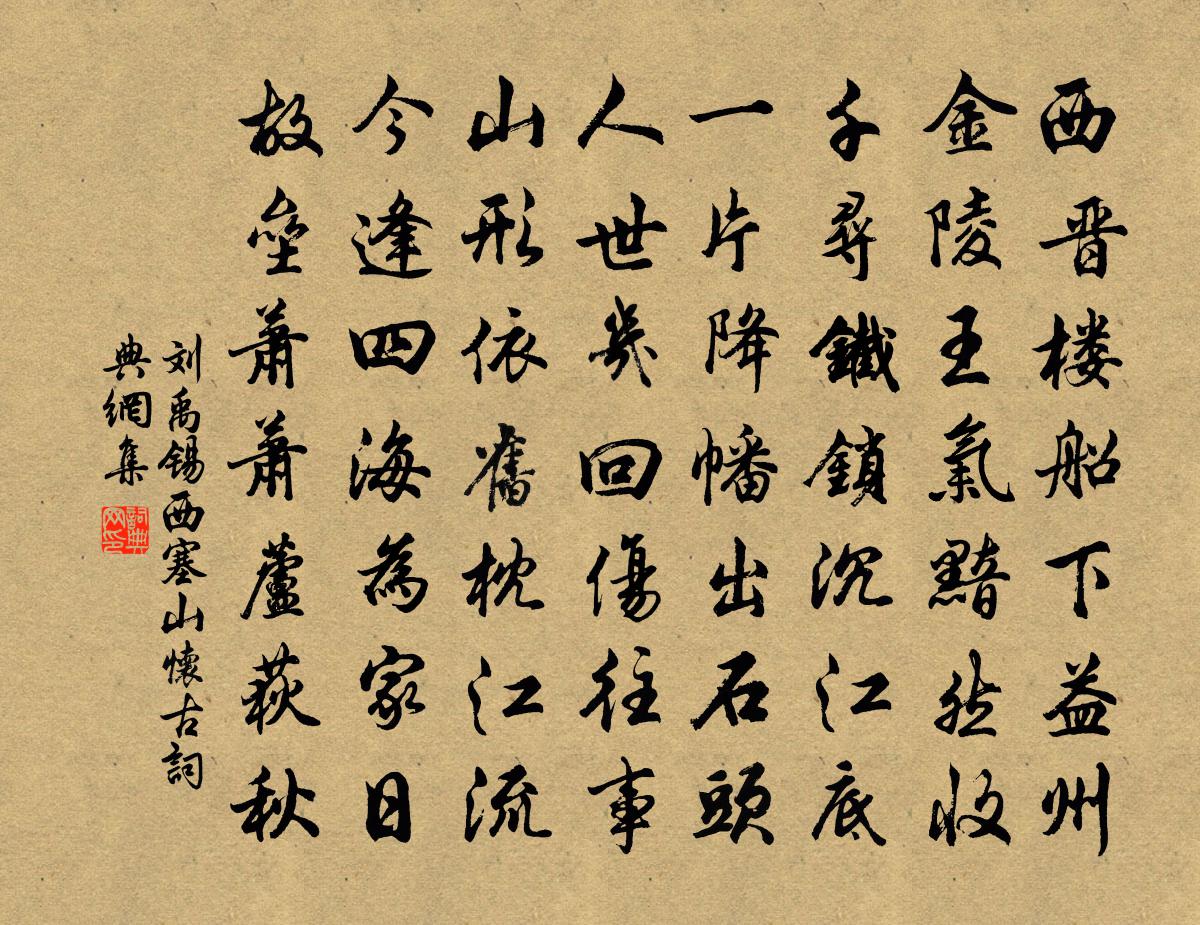 西晋楼船下益州
金陵王氣黯然收
千尋鐵鎖沉江底
一片降幡出石頭
人世幾回傷往事
山形依舊枕江流
今逢四海為家日
故壘蕭蕭蘆荻秋
刘禹锡西塞山懷古詞
典網集
詞典网印